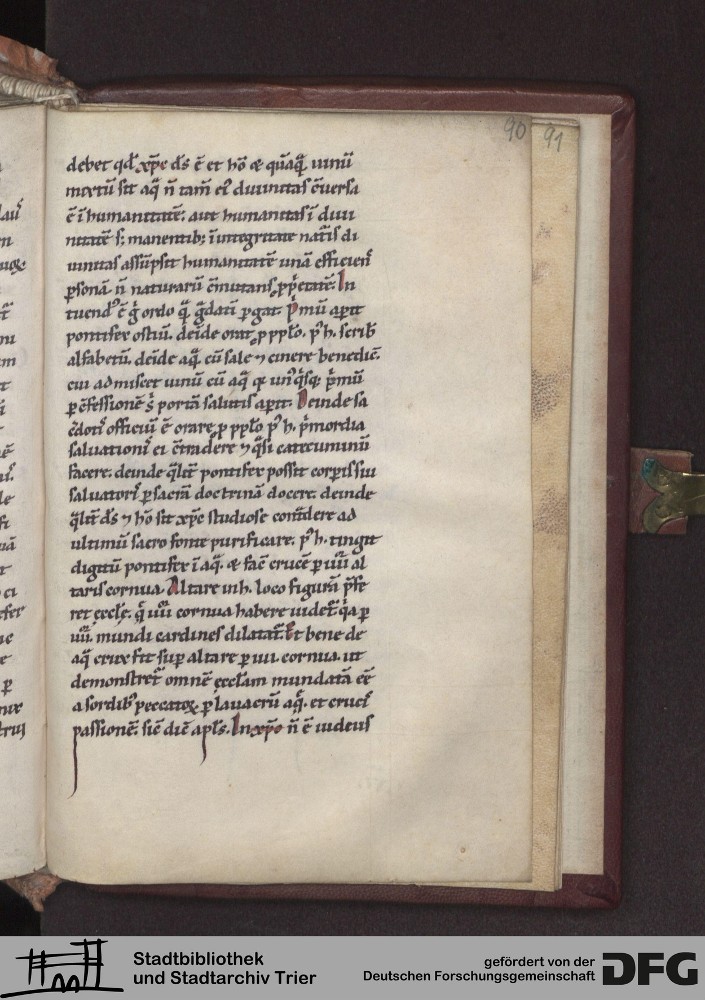 90 91
debet qd̄ xp̄c d̄s ē et hō & quāqͣ uinū
mixtū sit aqͣ n̄ tam̄ ei᷒ diuinitas ɔ̄uersa
ē ī humanitatē. aut humanitas ī diui
nitatē s; manentib; ī integritate nat̄is di
uinitas assūpsit humanitatē unā efficien̄
ꝑsonā n̄ naturarū ɔ̄mutans ꝓp̄etatē. In
tuend᷒ ē g̊ ordo qͣ
pontifex ostiū. deīde orat ꝓ pplo. p᷒ h. scrib̄
alfabetū. deīde aqͣ cū sale ⁊ cinere benedic̄.
cui admiscet uinū cū aqͣ
ꝑ ɔ̄fessionē portā salutis aꝑit. Deinde sa
c̄doti᷒ officiū ē orare ꝓ pplo p᷒ h. p̄mordia
saluationi᷒ ei ɔ̄tradere ⁊ qͣsi catecuminū
facere. deinde qͣlit̄ pontifex possit corꝑis sui
saluatori᷒ ꝑ sacrā doctrinā docere. deinde
qͣlit̄ d̄s ⁊ hō sit xp̄c studiose ad
ultimū sacro fonte purificare. p᷒ h. tingit
digitū pontifex ī aqͣ. & fac̄ crucē ꝑ iiii al
taris cornua. Altare in h. loco figurā p̄fe
ret eccle. qͣ iiii cornua habere uidet̄ qͥa ꝑ
iiii. mundi cardines dilatat̄. Et bene de
aqͣ crux fit suꝑ altare ꝑ iiii. cornua. ut
demonstret̄ omnē eccl̄am mundatā eē
a sordib᷒ peccatoꝝ ꝑ lauacrū aqͣ. et cruci᷒
passionē. sic̄ dic̄ apl̄s. In xp̄o n̄ ē iudeus
Stadtbibliothek
und Stadtarchiv Trier
gefördert von der
Deutschen Forschungsgemeinschaft
DFG